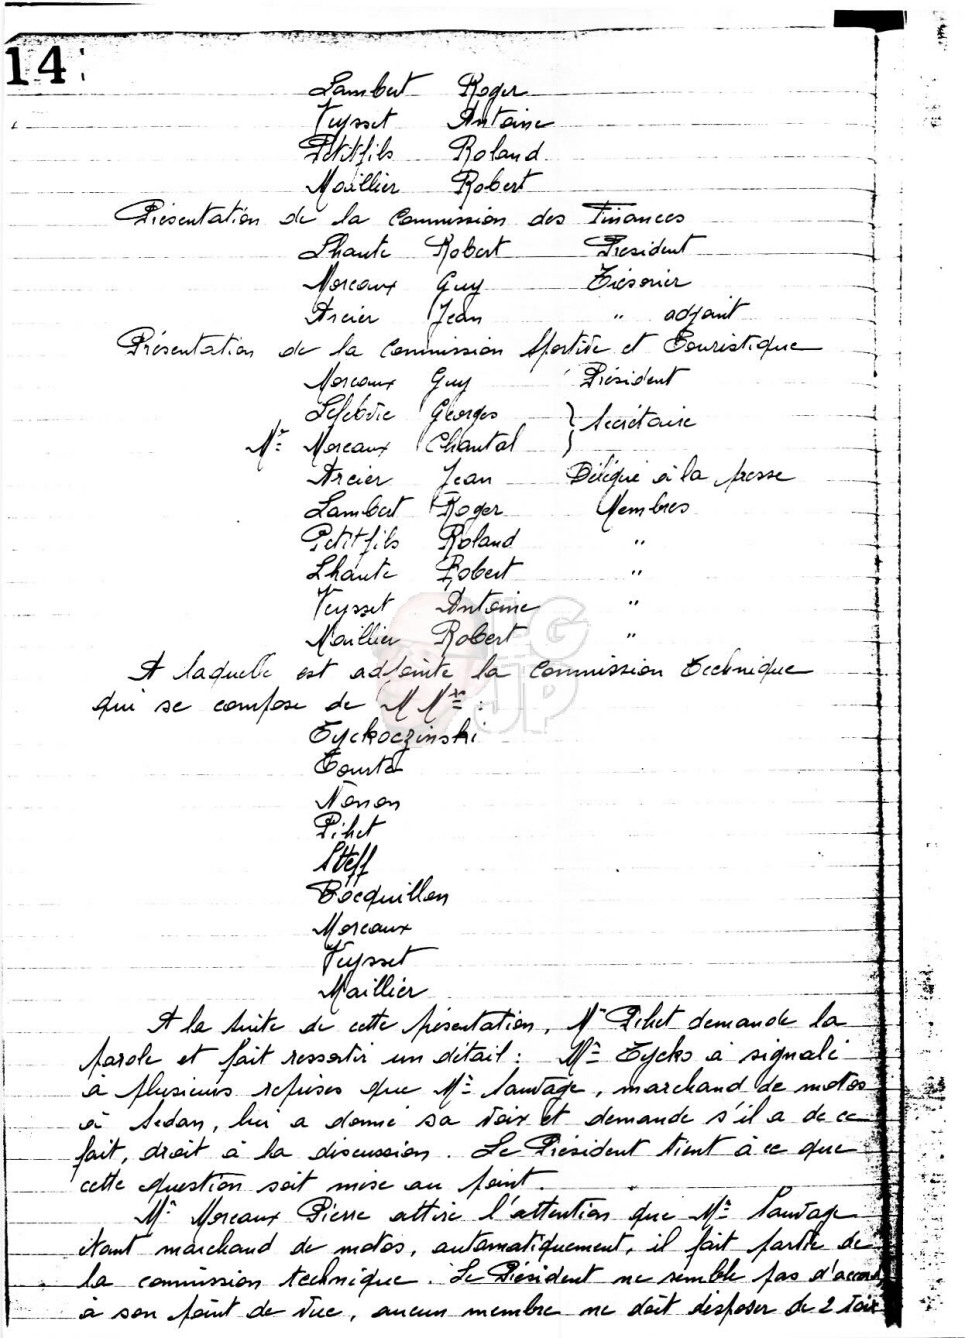 14
Lambert Roger
Veysset Antoine
Petitfils Roland
Maillier Robert
Présentation de la Commission des Finances
Lhaute Robert Président
Moreaux Guy Trésorier
Arcier Jean " adjoint
Présentation de la Commission Sportive et Touristique
Moreaux Guy Président
Lefebvre Georges } Secrétaire
Mme Moreaux Chantal }
Arcier Jean Délégué à la presse
Lambert Roger Membres
Petitfils Roland "
Lhaute Robert "
Veysset Antoine "
Maillier Robert "
A laquelle est adjointe la Commission Technique
qui se compose de M Mrs :
Tyckoczinski
Nonon
Pihet
Steff
Bocquillon
Moreaux
Veysset
Maillier
A la suite de cette présentation, Mr Pihet demande la
parole et fait ressortir un détail : Mr Tycko a signalé
à plusieurs reprises que Mr Sauvage, marchand de motos
à Sedan, lui a donné sa voix et demande s'il a de ce
fait, droit à la discussion. Le Président tient à ce que
cette question soit mise au point.
Mr Moreaux Pierre attire l'attention que Mr Sauvage
étant marchand de motos, automatiquement, il fait partie de
la commission technique. Le Président ne semble pas d'accord
à son point de vue, aucun membre ne doit disposer de 2 voix
IGJP